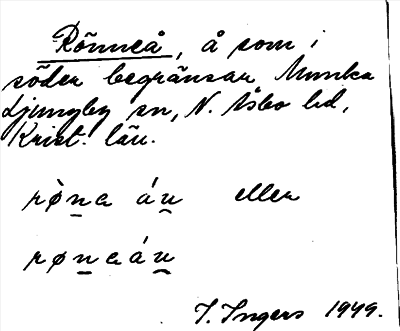 Rönneå, å som i
söder begränsar Munka
Ljungby sn, N. Åsbo hd,
Krist. län.
rø̀na áu eller
rønaáu
I. Ingers 1949.